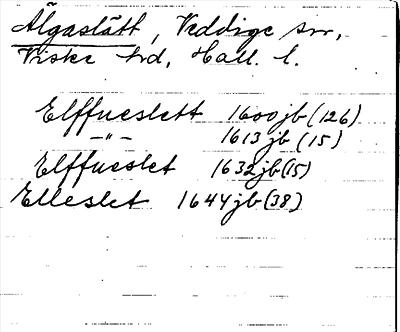 Älgaslätt, Veddige sn,
Viske hd, Hall. l.
Elffueslett 1600 jb (126)
—"— 1613 jb (15)
Elffueslet 1632 jb (15)
Elleslet 1644 jb (38)